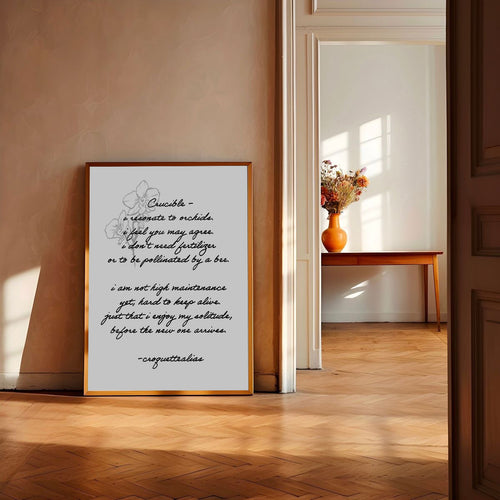 Crucible -
i resonate to orchids.
i feel you may agree.
i don't need fertilizer
or to be pollinated by a bee.
i am not high maintenance
yet, hard to keep alive.
just that i enjoy my solitude,
before the new one arrives.
-croquettealias